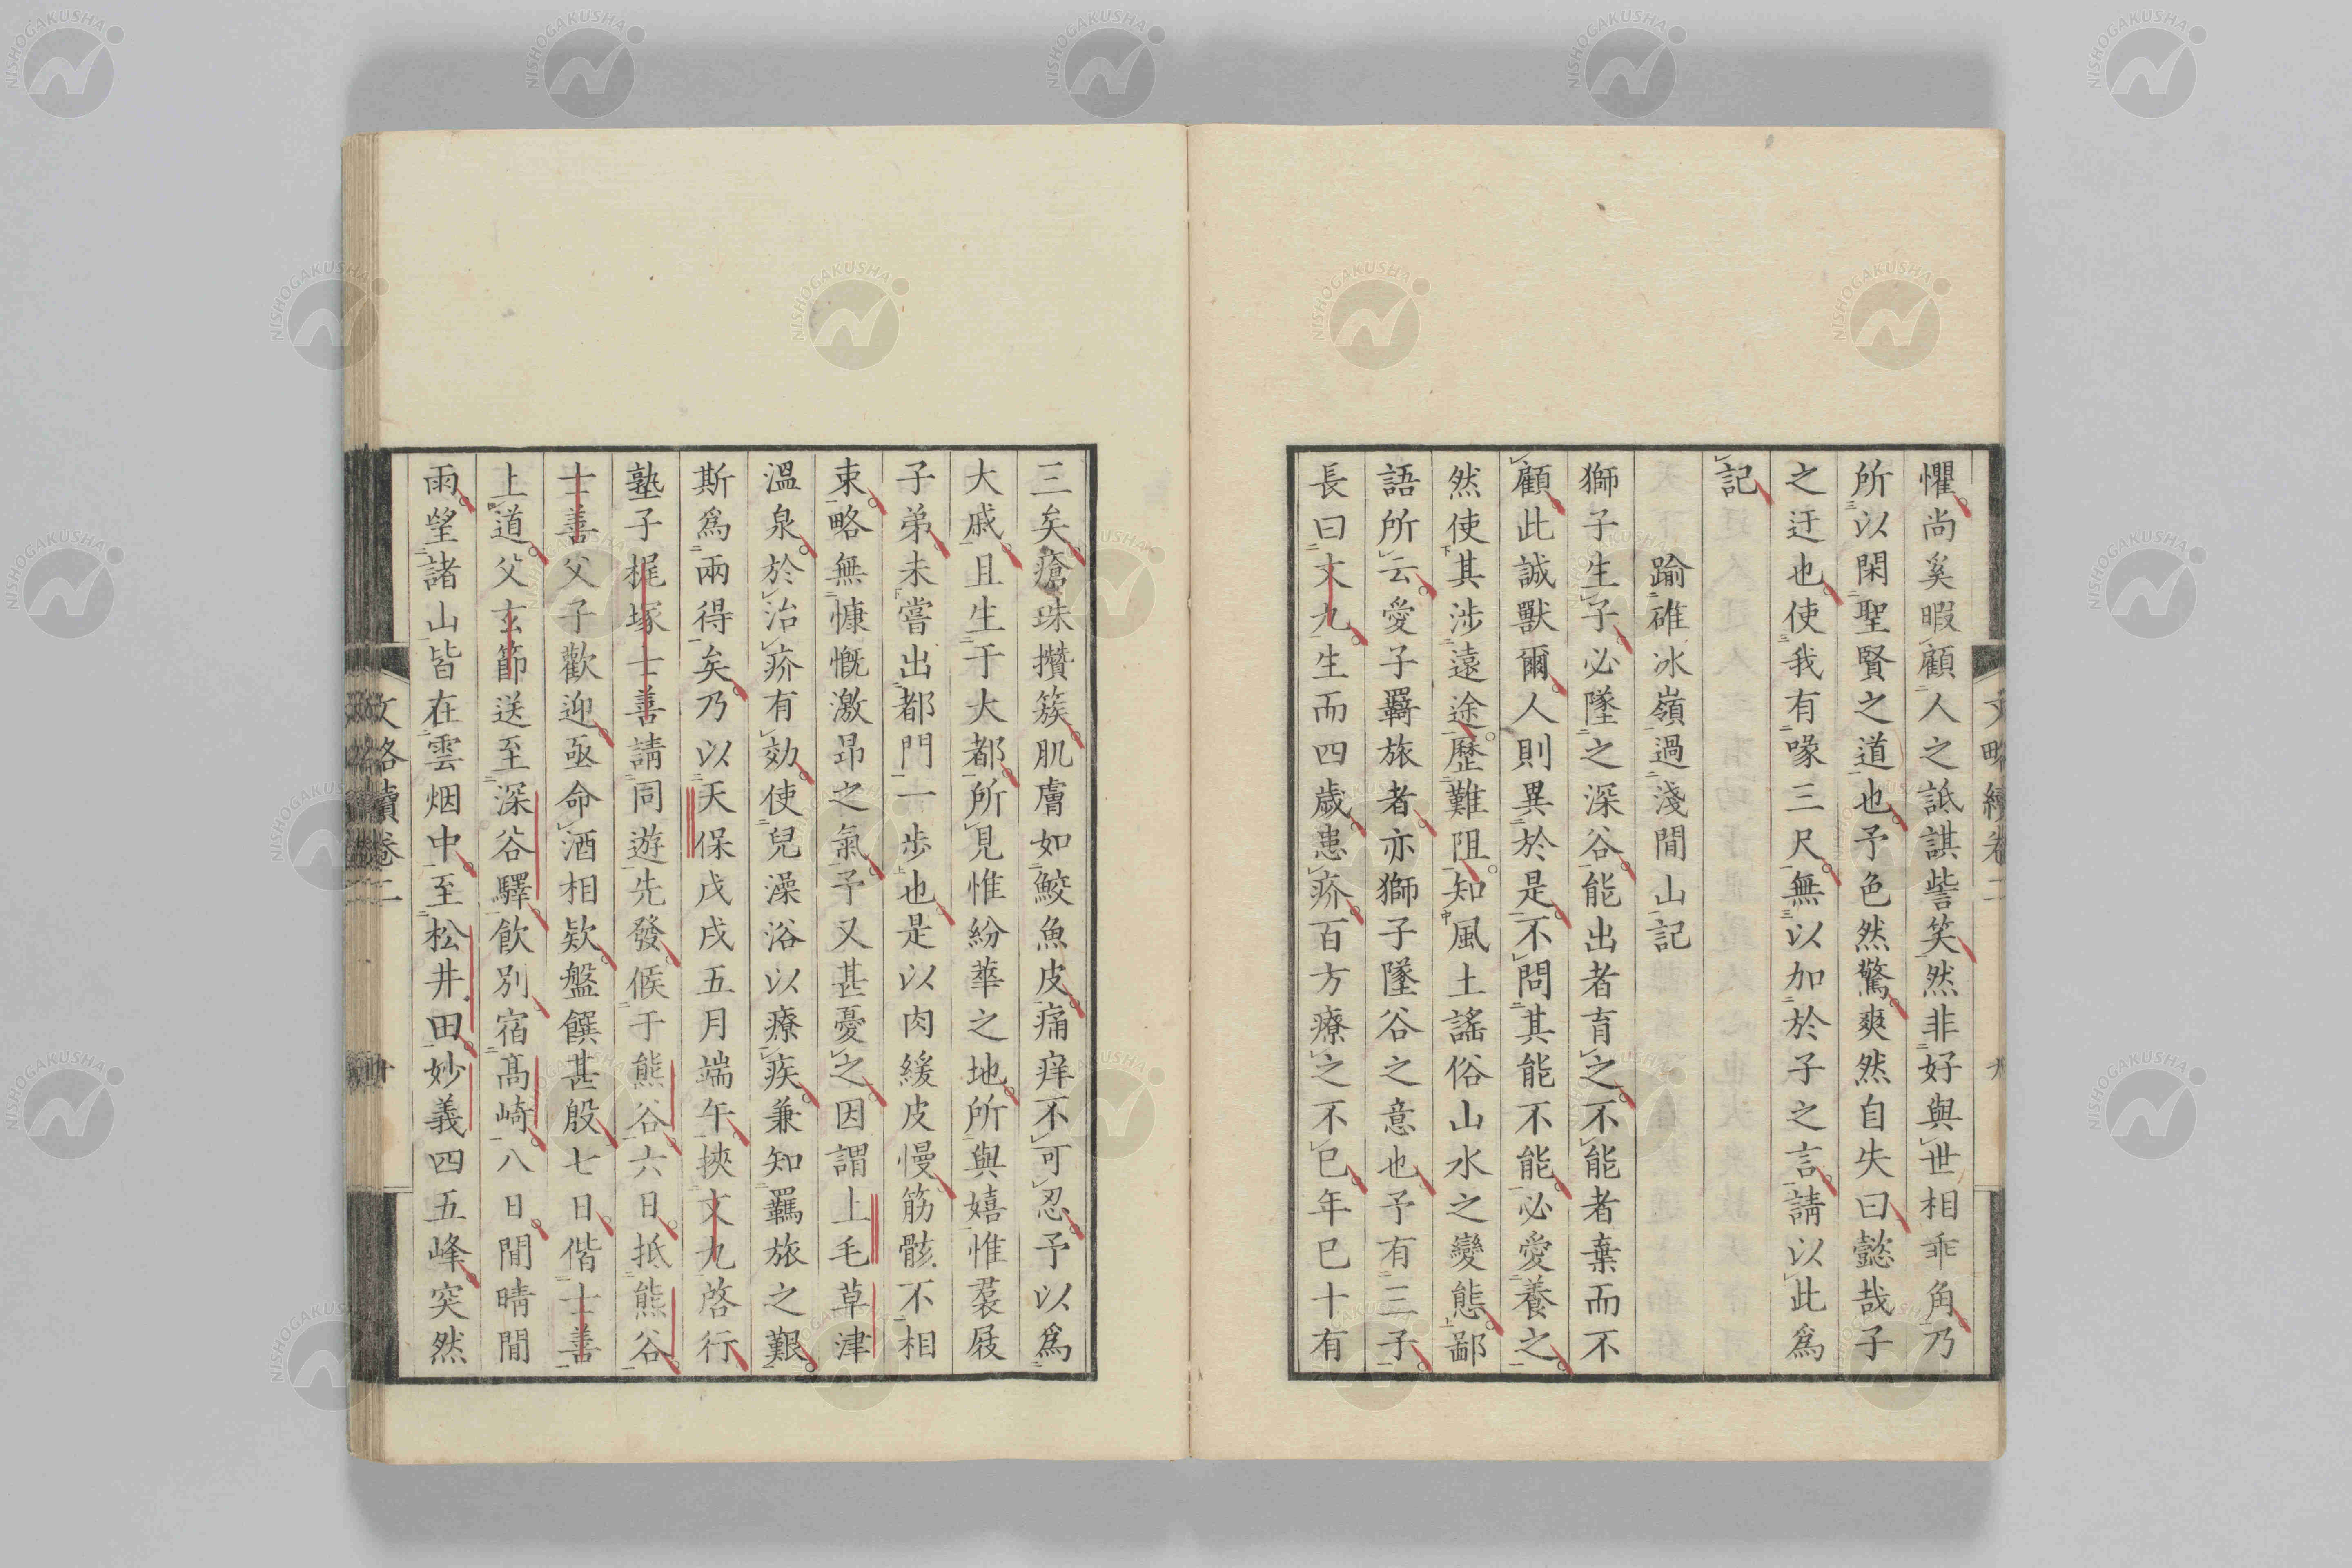 懼尚奚暇顧人之詆諆訾笑然非好與世相乖角乃
所以閑聖賢之道也予色然驚爽然自失曰懿哉子
之迂也使我有喙三尺無以加於子之言請以此爲
記
踰碓冰嶺過淺間山記
獅子生子必墜之深谷能出者育之不能者棄而不
顧此誠獸爾人則異於是不問其能不能必愛養之
然使其涉遠途歷難阻知風土謠俗山水之變態鄙
語所云愛子羇旅者亦獅子墜谷之意也予有三子
長曰文九生而四歲患疥百方療之不已年已十有
三矣瘡珠攢簇肌膚如鮫魚皮痛痒不可忍予以爲
大戚且生于大都所見惟紛華之地所與嬉惟羣屐
子弟未嘗出都門一步也是以肉緩皮慢筋骸不相
束略無慷慨激昂之氣予又甚憂之因謂上毛草津
溫泉於治疥有効使兒澡浴以療疾兼知羈旅之艱
斯爲兩得矣乃以天保戊戌五月端午挾文九啓行
塾子梶塚士善請同遊先發候于熊谷六日抵熊谷
士善父子歡迎亟命酒相欵盤饌甚殷七日偕士善
上道父玄節送至深谷驛飲別宿高崎八日間晴間
雨望諸山皆在雲烟中至松井田妙義四五峰突然
文略續卷二
NISHOGAKUSHA